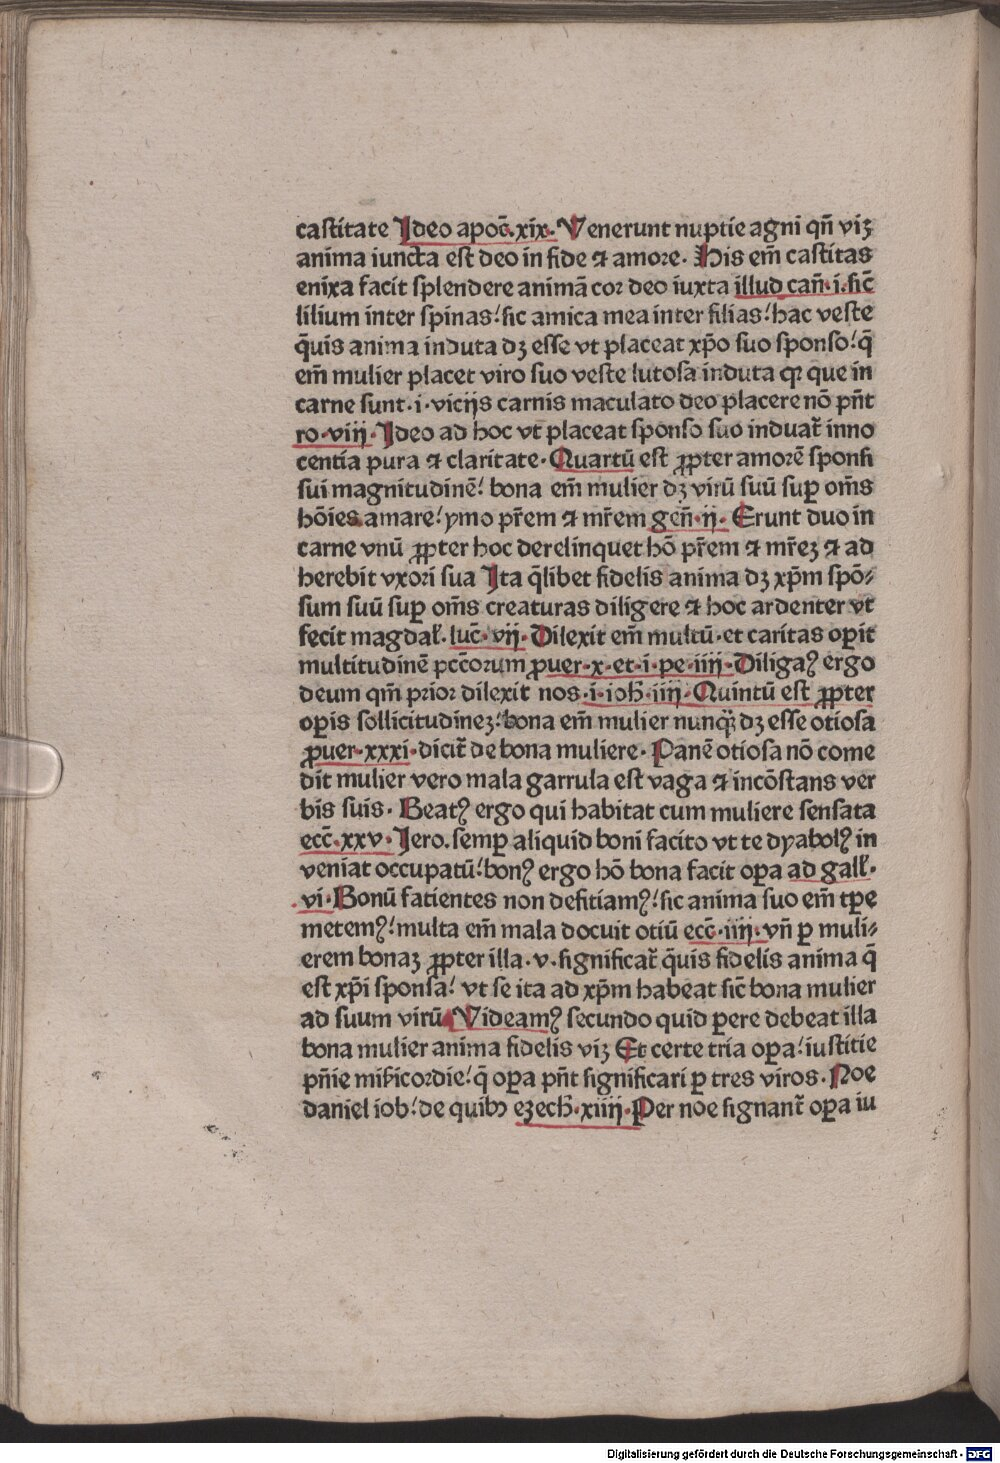 castitate Ideo apoc̄.xix. Venerunt nuptie agni qn̄ viꝫ
anima iuncta est deo in fide ⁊ amore. His em̄ castitas
enixa facit splendere animā cor deo iuxta illud can̄.i.sic̄
lilium inter spinas! sic amica mea inter filias! hac veste
q̄uis anima induta dꝫ esse vt placeat xp̄o suo sponso! q̄
em̄ mulier placet viro suo veste lutosa induta qꝛ que in
carne sunt.i.vicijs carnis maculato deo placere nō pn̄t
ro.viij. Ideo ad hoc vt placeat sponso suo induat᷑ inno
centia pura ⁊ claritate. Quartū est ꝓpter amorē sponsi
sui magnitudinē! bona em̄ mulier dꝫ virū suū suꝑ om̄s
hōies amare! ymo pr̄em ⁊ mr̄em gen̄.ij. Erunt duo in
carne vnū ꝓpter hoc derelinquet hō pr̄em ⁊ mr̄eꝫ ⁊ ad
herebit vxori sua Ita q̄libet fidelis anima dꝫ xp̄m spō⸗
sum suū suꝑ om̄s creaturas diligere ⁊ hoc ardenter vt
fecit magdal̄. luc̄.vij. Dilexit em̄ multū.et caritas oꝑit
multitudinē pcc̄orum ꝓuer.x.et.i.pe.iiij. Diligaꝰ ergo
deum qm̄ prior dilexit nos.i.ioh̄.iiij. Quintū est ꝓpter
oꝑis sollicitudineꝫ! bona em̄ mulier nunqᷓ dꝫ esse otiosa
ꝓuer.xxxi.dicit᷑ de bona muliere. Panē otiosa nō come
dit mulier vero mala garrula est vaga ⁊ incōstans ver
bis suis. Beatꝰ ergo qui habitat cum muliere sensata
ecc̄.xxv. Jero.semꝑ aliquid boni facito vt te dyabolꝰ in
veniat occupatū! bonꝰ ergo hō bona facit oꝑa ad gall̄.
vi. Bonū fatientes non defitiamꝰ! sic anima suo em̄ tꝑe
metemꝰ! multa em̄ mala docuit otiū ecc̄.iiij.vn̄ ꝑ muli⸗
erem bonaꝫ ꝓpter illa.v.significat᷑ q̄uis fidelis anima q̄
est xp̄i sponsa! vt se ita ad xp̄m habeat sic̄ bona mulier
ad suum virū Videamꝰ secundo quid ꝑere debeat illa
bona mulier anima fidelis viꝫ Et certe tria oꝑa! iustitie
pn̄ie mih̄icordie! q̄ oꝑa pn̄t significari ꝑ tres viros. Noe
daniel iob! de quibꝰ ezech̄.xiiij. Per noe signant᷑ oꝑa iu
Digitalisierung gefördert durch die Deutsche Forschungsgemeinschaft - DFG